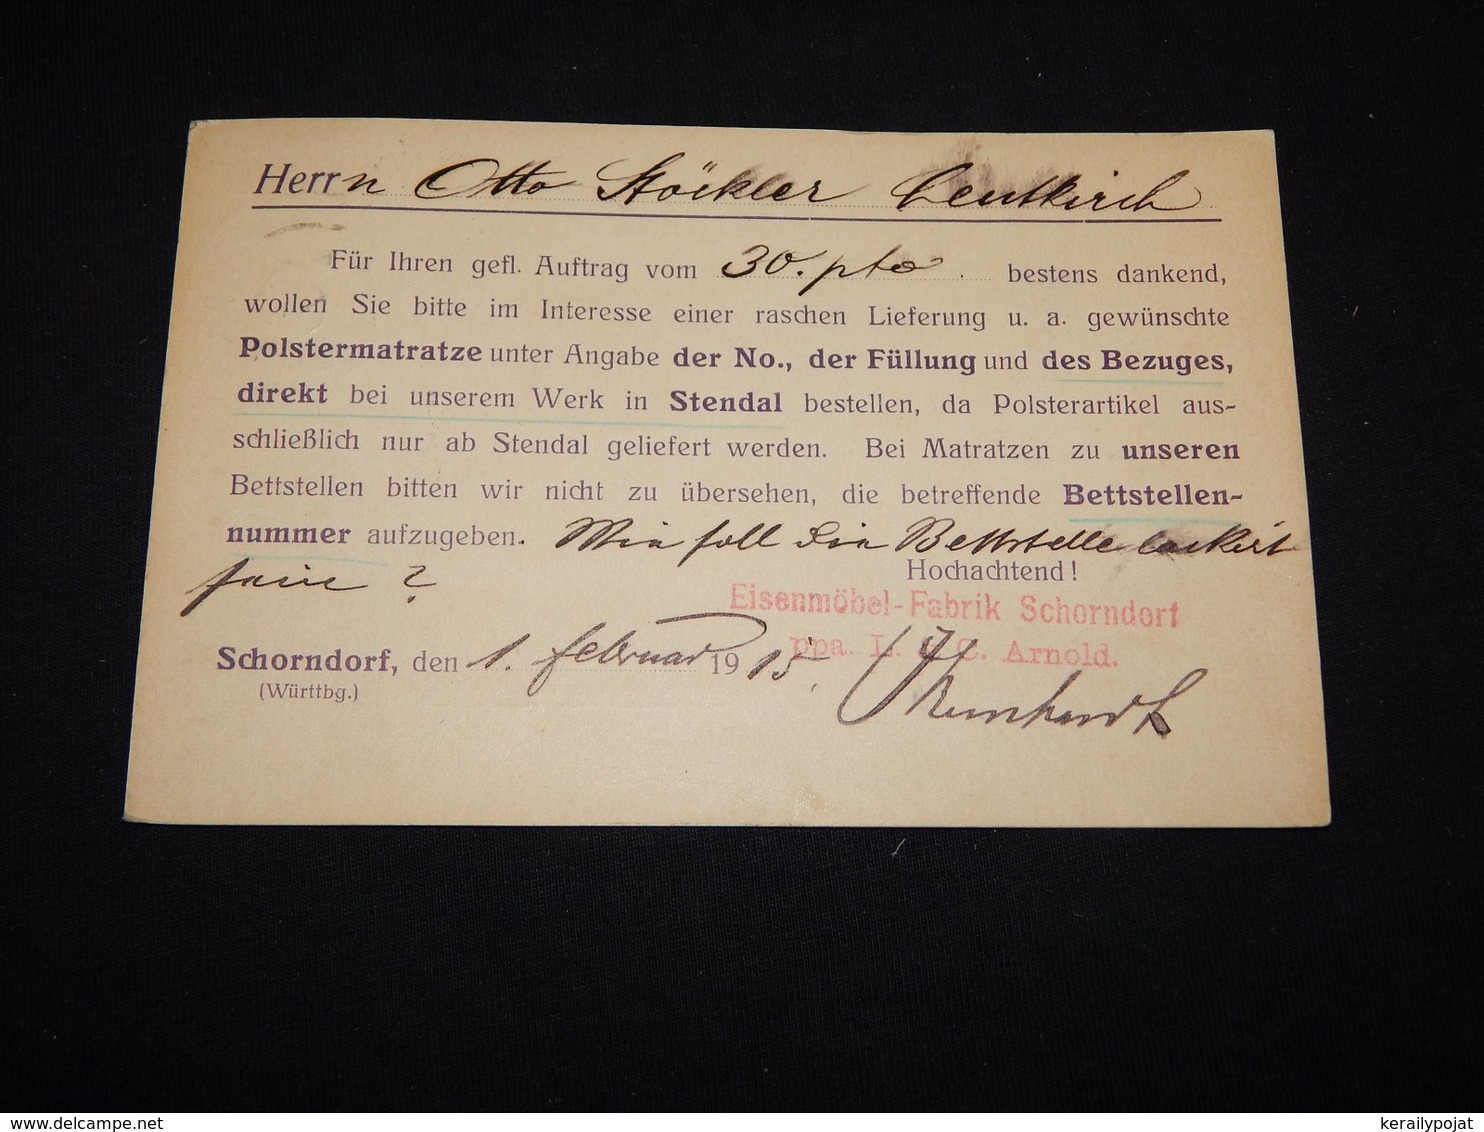 Herrn Otto Stöckler Leutkirch
Für Ihren gefl. Auftrag vom 30. pto. bestens dankend,
wollen Sie bitte im Interesse einer raschen Lieferung u. a. gewünschte
Polstermatratze unter Angabe der No., der Füllung und des Bezuges,
direkt bei unserem Werk in Stendal bestellen, da Polsterartikel aus-
schließlich nur ab Stendal geliefert werden. Bei Matratzen zu unseren
Bettstellen bitten wir nicht zu übersehen, die betreffende Bettstellen-
nummer aufzugeben. Wie soll die Bettstelle lackirt
sein?
Hochachtend!
Eisenmöbel-Fabrik Schorndorf
ppa. L. & C. Arnold.
Schorndorf, den 1. Februar 1915.
(Württbg.)
delcampe.net
kerailypojat